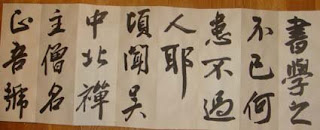 書學之
不已何
患不過
人耶
頃聞吴
中北禪
主僧名
正吾號